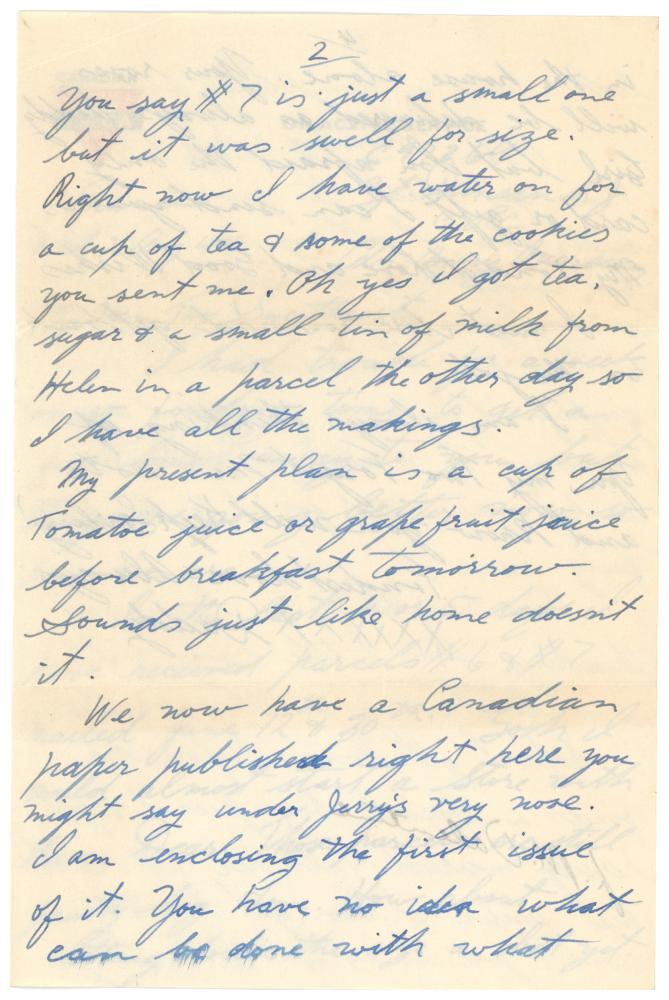 2
You say #7 is just a small one
but it was swell for size.
Right now I have water on for
a cup of tea & some of the cookies
you sent me. Oh yes I got tea,
sugar & a small tin of milk from
Helen in a parcel the other day so
I have all the makings.
My present plan is a cup of
Tomatoe juice or grapefruit juice
before breakfast tomorrow.
Sounds just like home doesn't
it.
We now have a Canadian
paper published right here you
might say under Jerry's very nose.
I am enclosing the first issue
of it. You have no idea what
can be done with what